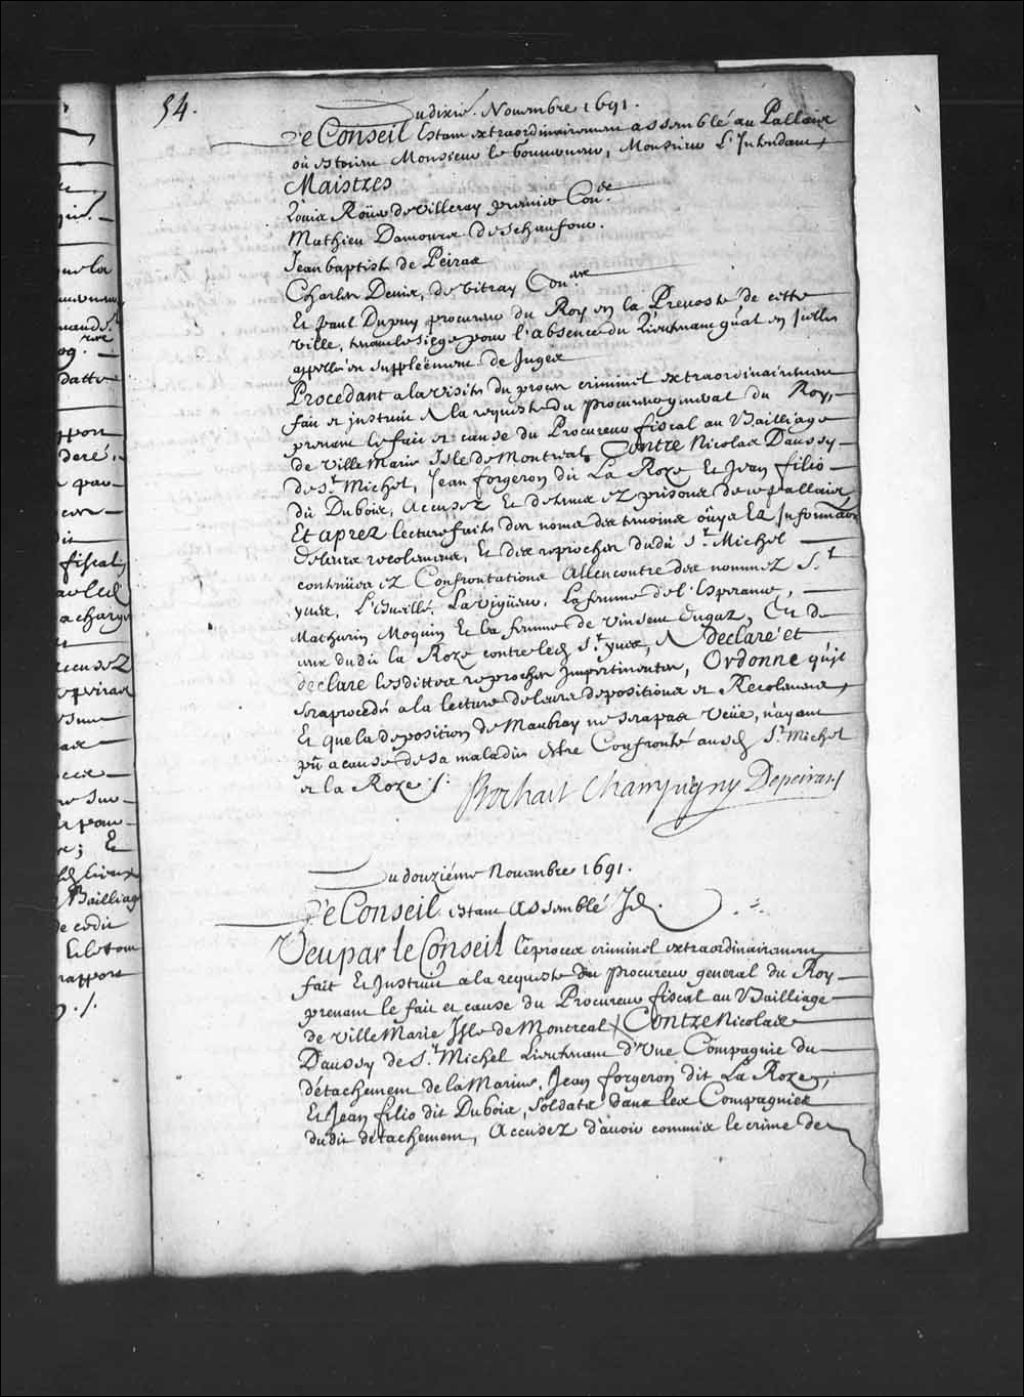 54.
Du dixie. Novembre 1691.
Le Conseil Estant extraordinairement assemblé au Pallais
où estoient Monsieur le Gouverneur, Monsieur L'Intendant,
Maistres
Louis Roüer de Villeray premier Con.er
Mathieu Damours Deschaufour.
Jean baptiste de Peiras
Charles Denis, de Vitray Con.ers
Et Paul Dupuy procureur du Roy en la Prevosté de cette
ville, tenant le siege pour l'absence du Lieutenant gñal en icelle
appellé en suppleément de Juges
Procedant a la visite du procez criminel extraordinairement
fait et instruit a la requeste du procureur general du Roy,
prenant le fait et cause du Procureur fiscal au Bailliage
de Ville Marie Isle de Montreal, Contre Nicolas Daussy
de St. Michel, Jean forgeron dit La Roze Et Jean filio
dit Dubois, Accusez Et detenus ez prisons de ce pallais,
Et aprez lecture faite des noms des temoins oüys Ez Informaons
de leurs recolemens, Et des reproches dudit St. Michel
contenües ez Confrontations Allencontre des nommez St.
yves, L'Oueillé, La vigüeur, La femme de l'Esperance,
Mathurin Moquin Et la femme de Vincent Dugaz, Et de
ceux dudit la Roze contre led. St. yves, A declaré et
declare lesdittes reproches impertinentes, Ordonne qu'il
sera procedé a la lecture de leurs depositions et Recolemens,
Et que la deposition de Maubray ne sera pas veüe, n'ayant
pû a cause de sa maladie estre Confronté ausd. St. Michel
et la Roze ./.
Bochart Champigny Depeiras
Du douziéme Novembre 1691.
Le Conseil estant assemblé Id.
Veu par le Conseil le procez criminel extraordinairement
fait Et Instruit a la requeste du procureur general du Roy
prenant le fait et cause du Procureur fiscal au Bailliage
de Ville Marie Isle de Montreal / Contre Nicolas
Daussy de St. Michel Lieutenant d'Une Compagnie du
détachement de la Marine, Jean forgeron dit La Roze,
Et Jean filio dit Dubois, soldats dans les Compagnies
dudit détachement, Accusez d'avoir commis le crime de